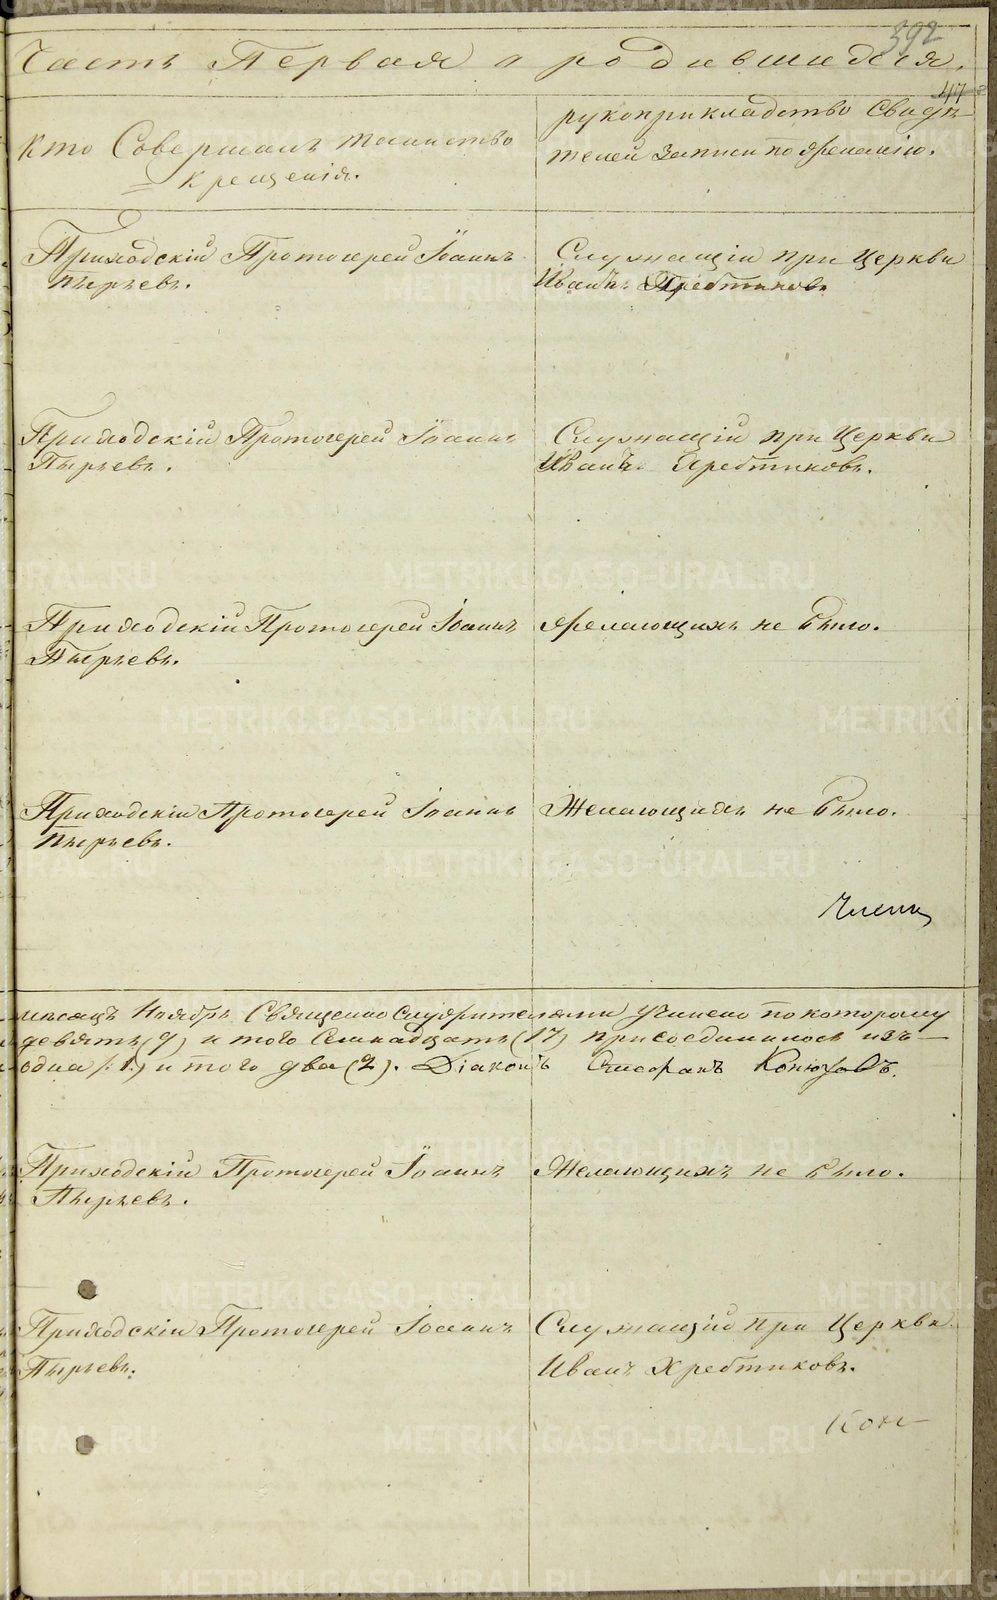 392
Часть Первая о родившихся.
47
Кто Совершалъ таинство
крещенія.
рукоприкладство Свидѣ
телей Записи по желанію.
Приходскій Протоіерей Іоаннъ
Пырьевъ.
Служащій при Церкви
Иванъ Хребтиковъ
Приходскій Протоіерей Іоаннъ
Пырьевъ.
Служащій при Церкви
Иванъ Хребтиковъ.
Приходскій Протоіерей Іоаннъ
Пырьевъ.
Желающихъ не было.
Приходскій Протоіерей Іоаннъ
Пырьевъ.
Желающихъ не было.
мѣсяцъ Ноябрь Священно служителями учинено по которому
девять (9) и того Семнадцать (17) присоединилось изъ
одна (1) и того два (2). Діаконъ Конюховъ.
Приходскій Протоіерей Іоаннъ
Пырьевъ.
Желающихъ не было.
Приходскій Протоіерей Іоаннъ
Пырьевъ.
Служащій при Церкви
Иванъ Хребтиковъ.
Кон
METRIKI.GASO-URAL.RU